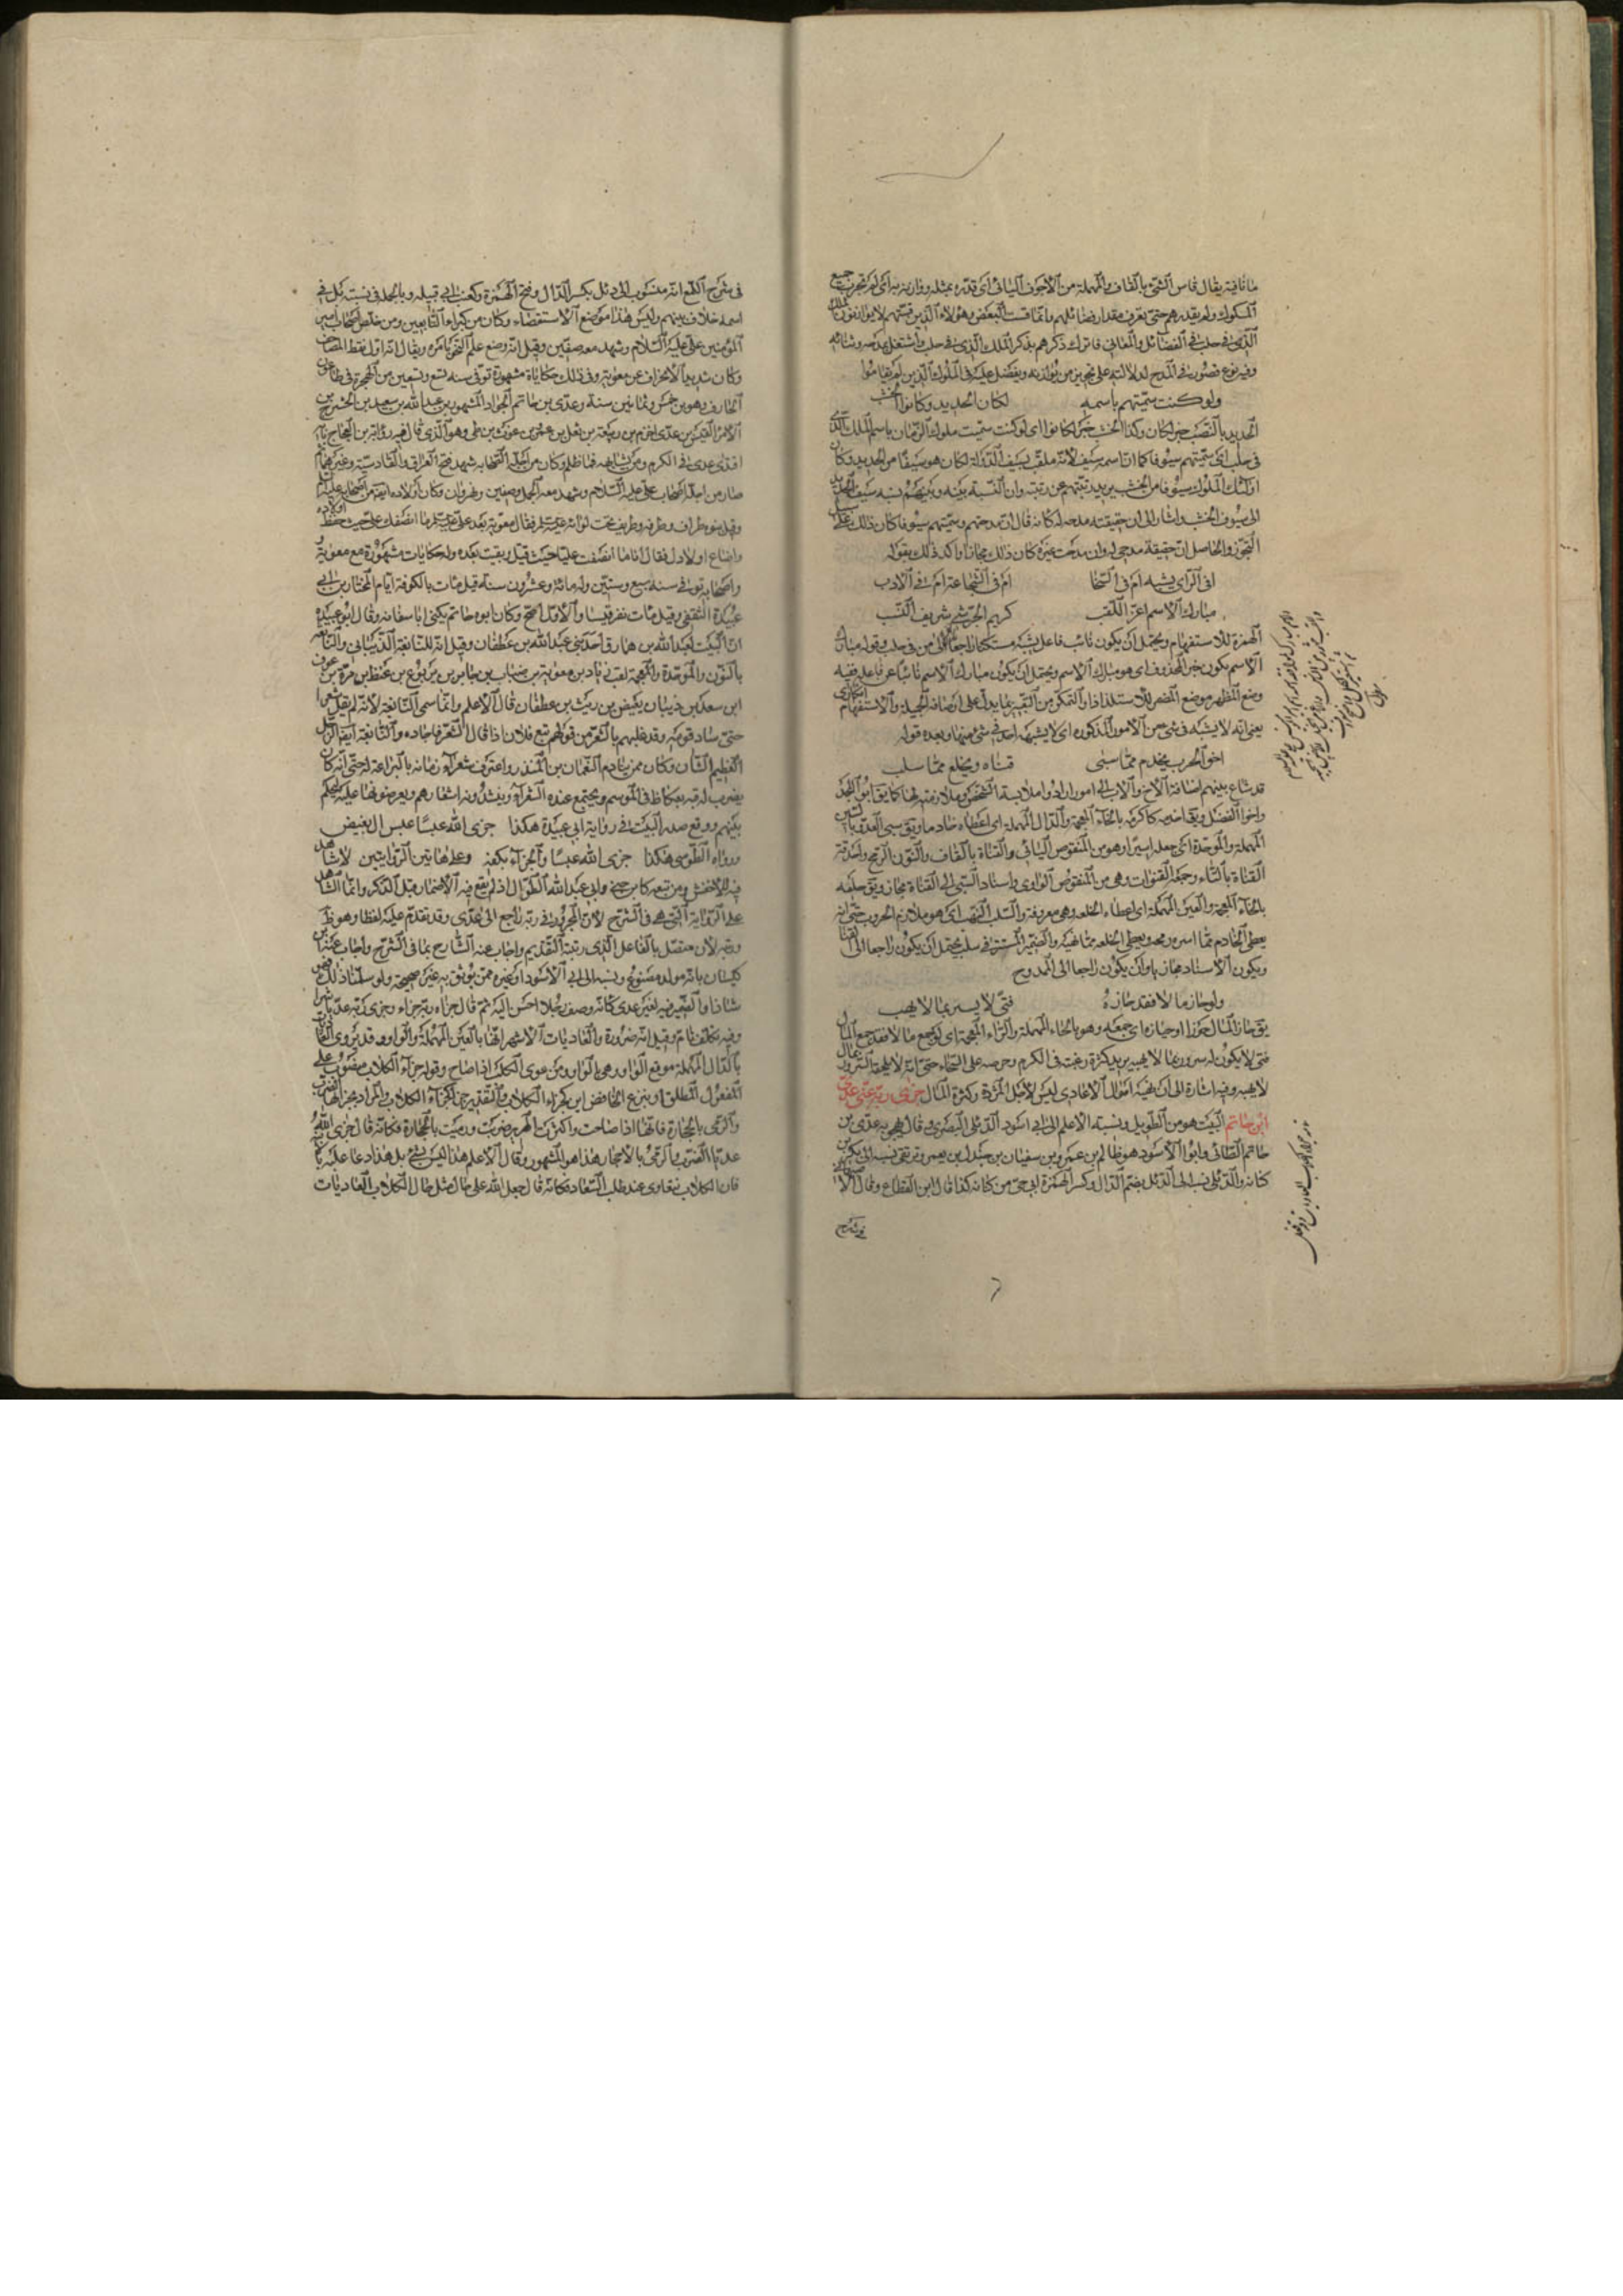 ما نافية يقال قاس الشئ بالقاف والمهملة من الأجوف اليائى اى قدره بمثله ووازنه به اى لم تجرب جميع
الملوك ولم يقدرهم حتى تعرف مقدار فضائلهم وانما قست البعض وهؤلاء الذين قستهم لا يوازنون الملك
الذى فى حلب فى الفضائل والمعالى فاترك ذكرهم بذكر الملك الذى فى حلب واشتغل بمدحه وثنائه
وفيه نوع قصور فى المدح لدلالته على تجويز من يوازنه ويفضل عليه فى الملوك الذين لم يقاسوا
ولو كنت سميتهم باسمه لكان الحديد وكانوا الخشب
الحديد بالنصب خبر لكان وكذا الخشب خبر لكانوا اى لو كنت سميت ملوك الزمان باسم الملك الذى
فى حلب اى سميتهم سيوفا كما ان اسمه سيف لانه ملقب بسيف الدولة لكان هو سيفا من الحديد وكان
اولئك الملوك سيوفا من الخشب يريد تبتهم عن رتبته وان النسبة بينه وبينهم نسبة سيف الحديد
الى سيوف الخشب واشار الى ان حقيقته مدحه له كانه قال ان مدحتهم وسميتهم سيوفا كان ذلك على سبيل
التجوز والحاصل ان حقيقة مدحى له وان مدحت غيره كان ذلك مجازا واكد ذلك بقوله
افى الرأى يشبه ام فى السخا ام فى الشجاعة ام فى الادب
مبارك الاسم اغر اللقب كريم الجرشى شريف النسب
الهمزة للاستفهام ويحتمل ان يكون نائب فاعل يشبه مستكنا راجعا الى من فى حلب وقوله مبارك
الاسم يكون خبر المحذوف اى هو مبارك الاسم ويحتمل ان يكون مبارك الاسم نائبا عن فاعله ففيه
وضع المظهر موضع المضمر للاستلذاذ والتمكن من التعبير بما يدل على اوصافه الجميلة والاستفهام انكارى
يعنى انه لا يشبه فى شئ من الامور المذكورة اى لا يشبهه احد فى شئ منها وبعده قوله
اخو الحرب يخدم مما سبى قناه ويخلع مما سلب
قد شاع بينهم اضافة الاخ والاب الى امور ارادوا ملابسة الشخص وملازمته بها كما يق ابو المجد
واخو الفضل ويق اخدمه كاكرمه بالخاء المعجمة والدال المهملة اى اعطاه خادما ويق سبى العدو بالسين
المهملة والموحدة اى جعله اسيرا وهو من المنقوص اليائى والقناة بالقاف والنون الرمح واحدته
القناة بالتاء وجمعه القنوات وهى من المنقوص الواوى واسناد السبى الى القناة مجاز ويق خلعه
بالخاء المعجمة والعين المهملة اى اعطاء الخلعة وهى معروفة والسلب النهب اى هو ملازم الحروب حتى انه
يعطى الخادم مما اسره رمحه ويعطى الخلعة مما نهبه والضمير المستتر فى سلب يحتمل ان يكون راجعا الى القنا
ويكون الاسناد مجازيا وان يكون راجعا الى الممدوح
ولو حاز مالا فقد حازه فتى لا يسر بما لا يهب
يق حاز المال حوزا او حيازة اى جمعه وهو بالحاء المهملة والزاء المعجمة اى لو جمع مالا فقد جمع المال
فتى لا يكون له سرور بما لا يهبه يريد كثرة رغبته فى الكرم وحرصه على السخاء حتى انه لا يلحقه السرور بمال
لا يهبه وفيه اشارة الى ان نهبه اموال الاعادى ليس لاجل الثروة وكثرة المال جزى ربه عنى عدى
ابن حاتم البيت هو من الطويل ونسبه الاعلم الى ابى اسود الدئلى البصرى وقال يهجو به عدى بن
حاتم الطائى وابو الاسود هو ظالم بن عمرو بن سفيان بن جندل بن يعمر وترتقى نسبه الى بكر بن
كنانه والدئلى نسب الى الدئل بضم الدال وكسر الهمزة ابى حى من كنانه كذا قال ابن القطاع وقال الا
فى شرح
فى شرح اللمع انه منسوب الى دئل بكسر الدال وفتح الهمزة وكعنب ابى قبيله وبالجملة فى نسبته بل فى
اسمه خلاف بينهم وليس هذا موضع الاستقصاء وكان من كبراء التابعين ومن خلص اصحاب امير
المؤمنين على عليه السلام وشهد معه صفين وقيل انه وضع علم النحو بامره ويقال انه اول نقط المصاحف
وكان شديد الانحراف عن معوية وله فى ذلك حكاياة مشهورة توفى سنة تسع وتسعين من الهجرة فى طاعون
الجارف وهو بن خمس وثمانين سنة وعدى بن حاتم الجواد المشهور بن عبد الله بن سعيد بن الحشرج بن
اقتدى عدى فى الكرم ومن يشابه ابه فما ظلم وكان من اجلة الصحابة شهد فتح العراق والقادسية وغيرهما ثم
صار من اجلة اصحاب على عليه السلام وشهد معه الجمل وصفين ونهروان وكان اولاده ايضا من اصحابه عليه السلام
واضاع اولادك فقال انا ما انصفت عليا حيث قتل وبقيت بعده وله حكايات مشهورة مع معوية
واصحابه توفى سنة سبع وستين وله مائة وعشرون سنة قيل مات بالكوفة ايام المختار بن ابى
عبيدة الثقفى وقيل مات بقرقيسا والاول اصح وكان ابوه حاتم يكنى ابا سفانه وقال ابو عبيدة
ان البيت لعبد الله بن همارق احد بنى عبد الله بن غطفان وقيل انه للنابغة الذبيانى والنابغه
بالنون والموحدة والمعجمة لقب زياد بن معوية بن ضباب بن جابر بن يربوع بن غيظ بن مرة بن عوف
ابن سعد بن ذبيان بغيض بن ريث بن غطفان قال الاعلم وانما سمى النابغة لانه لم يقل شعرا
حتى ساد قومه وقد غلبهم بالشعر من قولهم نبغ فلان اذا قال الشعر فاجاده والنابغة ايضا الرجل
العظيم الشأن وكان ممن ينادم النعمان بن المنذر واعترف شعراء زمانه بالبراعة له حتى انه كان
يضرب له قبة بعكاظ فى الموسم ويجتمع عنده الشعراء وينشدونه اشعارهم ويعرضونها عليه ليحكم
بينهم ووقع صدر البيت فى رواية ابى عبيدة هكذا جزى الله عبسا عبس ال بغيض
ورواه الطوسى هكذا جزى الله عبسا والجزاء بكفه وعلى هاتين الروايتين لا شاهد
فيه للاخفش ومن تبعه كابن جنى وابى عبد الله الطوال اذ لم يقع فيه الاضمار قبل الذكر وانما الشاهد
على الرواية التى هى فى الشرح لان المجرور فى ربه راجع الى عدى وقد تقدم عليه لفظا وهو ظ
ورتبة لانه متصل بالفاعل الذى رتبته التقديم واجاب عنه الشارح بما فى الشرح واجاب عنه ابن
كيسان بانه مولد مصنوع ونسبه الى ابى الاسود او غيره ممن يوثق به غير صحيحة ولو سلمنا ذلك فيكون
شاذا او الضمير فيه لغير عدى كانه وصف رجلا احسن اليه ثم قال جزاه ربه جزاء وجزى ربه عديا شرا
وفيه تكلف تام وقيل انه ضرورة والعاديات الاشهر انها بالعين المهملة والواو وقد يروى العاديات
بالدال المهملة موقع الواو وهى بالواو من عوى الكلب اذا صاح وقوله جزاء الكلاب منصوب على
المفعول المطلق او بنزع الخافض اى كجزاء الكلاب والتقدير جزاء كجزاء الكلاب والمراد بجزائها الضرب
والرمى بالحجارة فانها اذا صاحت واكثرت الهرير ضربت ورميت بالحجارة فكانه قال جزى الله
عديا الضرب والرمى بالاحجار هذا هو المشهور وقال الاعلم هذا ليس بشئ بل هذا دعا عليه بالابنه
فان الكلاب تتعاوى عند طلب السفاد فكانه قال جعل الله على حال مثل حال الكلاب العاديات